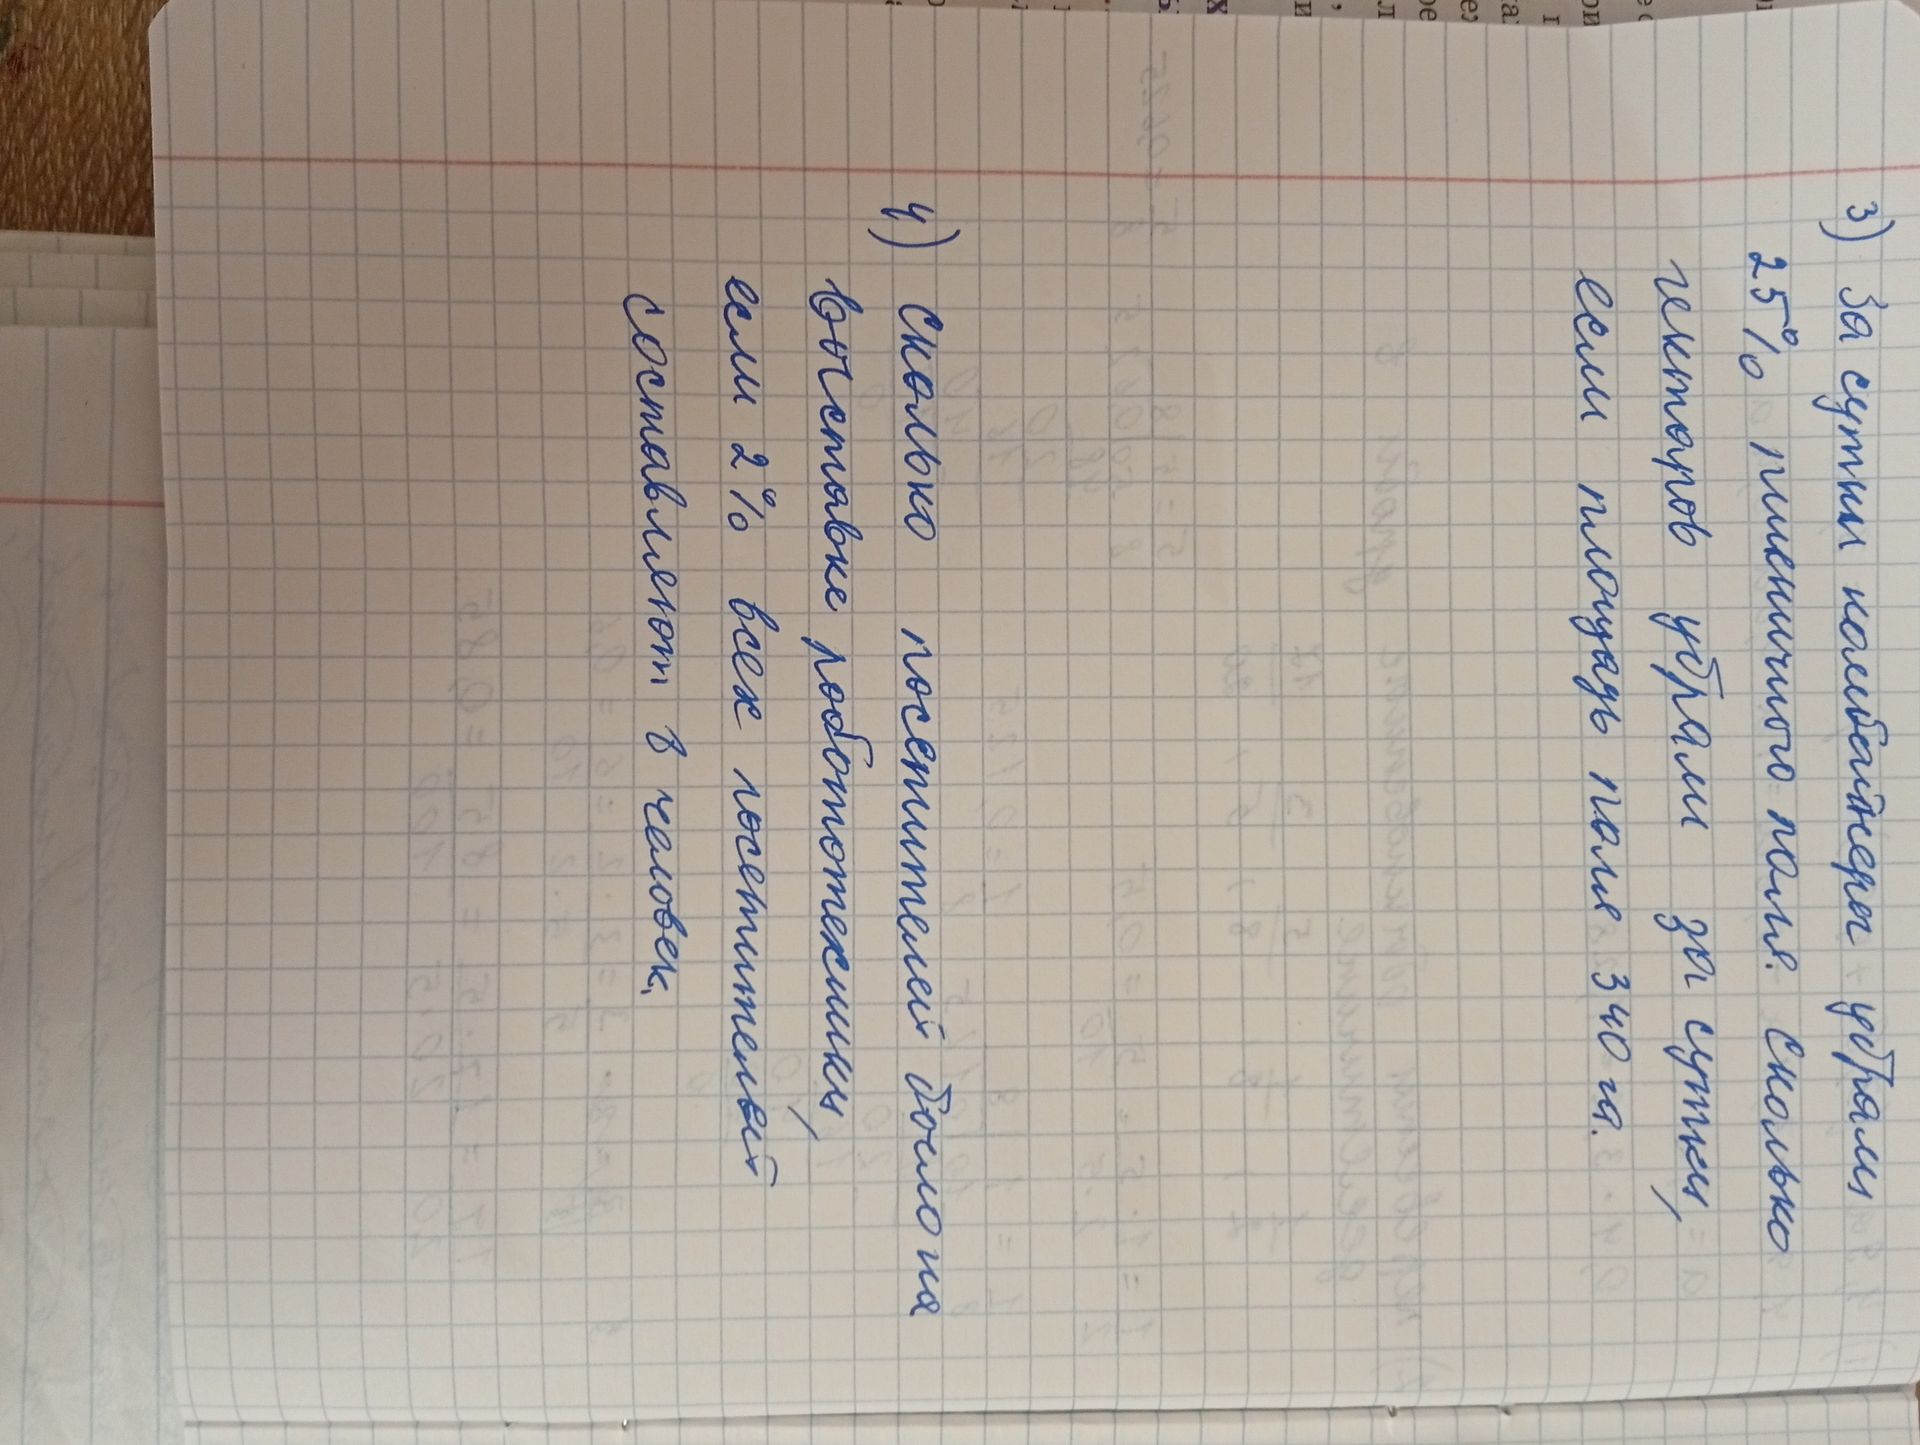 3) За сутки комбайнеры убрали
25% пшеничного поля. Сколько
гектаров убрали за сутки,
если площадь поля 340 га.
4) Сколько посетителей было на
выставке робототехники,
если 2% всех посетителей
составляют 8 человек.